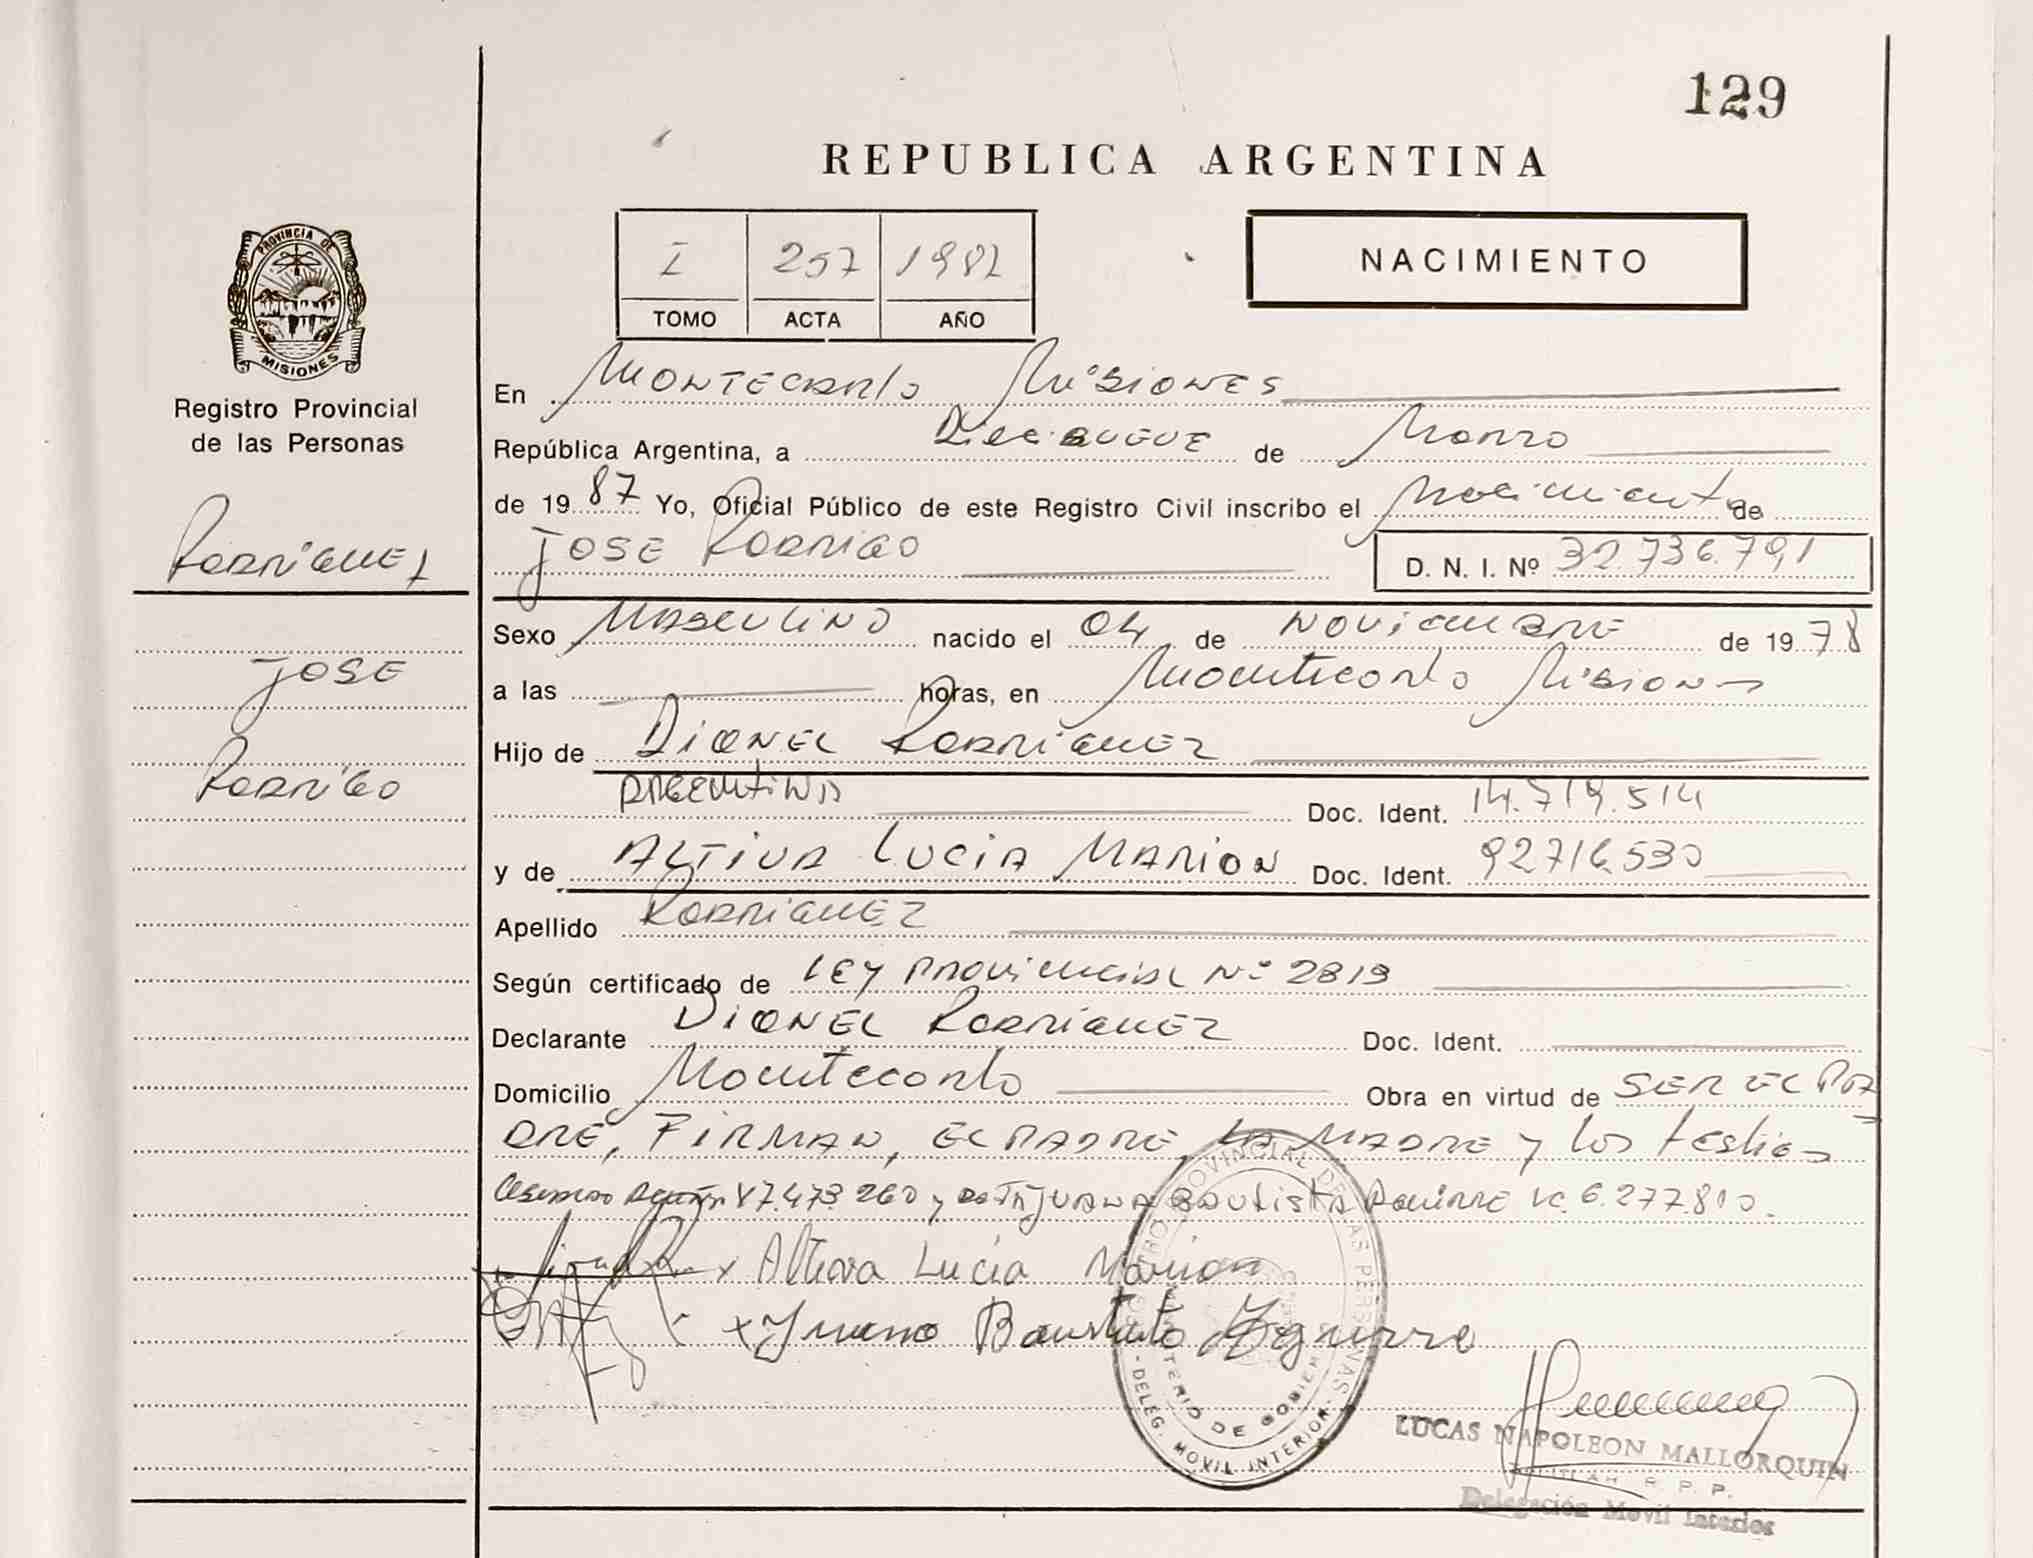 129
REPUBLICA ARGENTINA
I 257 1987
TOMO ACTA AÑO
NACIMIENTO
PROVINCIA DE
MISIONES
Registro Provincial
de las Personas
RODRIGUEZ
JOSE
RODRIGO
En MONTECARLO MISIONES
República Argentina, a DIECINUEVE de MARZO
de 1987 Yo, Oficial Público de este Registro Civil inscribo el Nacimiento de
JOSE RODRIGO D. N. I. Nº 32.736.791
Sexo MASCULINO nacido el 04 de NOVIEMBRE de 1978
a las horas, en Montecarlo Misiones
Hijo de DIONEL RODRIGUEZ
ARGENTINA Doc. Ident. 14.714.514
y de ALTIVA LUCIA MARION Doc. Ident. 92716.530
Apellido RODRIGUEZ
Según certificado de LEY PROVINCIAL Nº 2819
Declarante DIONEL RODRIGUEZ Doc. Ident.
Domicilio Montecarlo Obra en virtud de SER EL PA
DRE, FIRMAN, EL PADRE, LA MADRE y los testigos
17.473.260 y JUANA BAUTISTA AGUIRRE LC. 6.277.810.
x Altiva Lucia Marion
x Juana Bautista Aguirre
REGISTRO PROVINCIAL DE LAS PERSONAS
MINISTERIO DE GOBIERNO
- DELEG. MOVIL INTERIOR -
LUCAS NAPOLEON MALLORQUIN
R. P. P.
Delegación Movil Interior